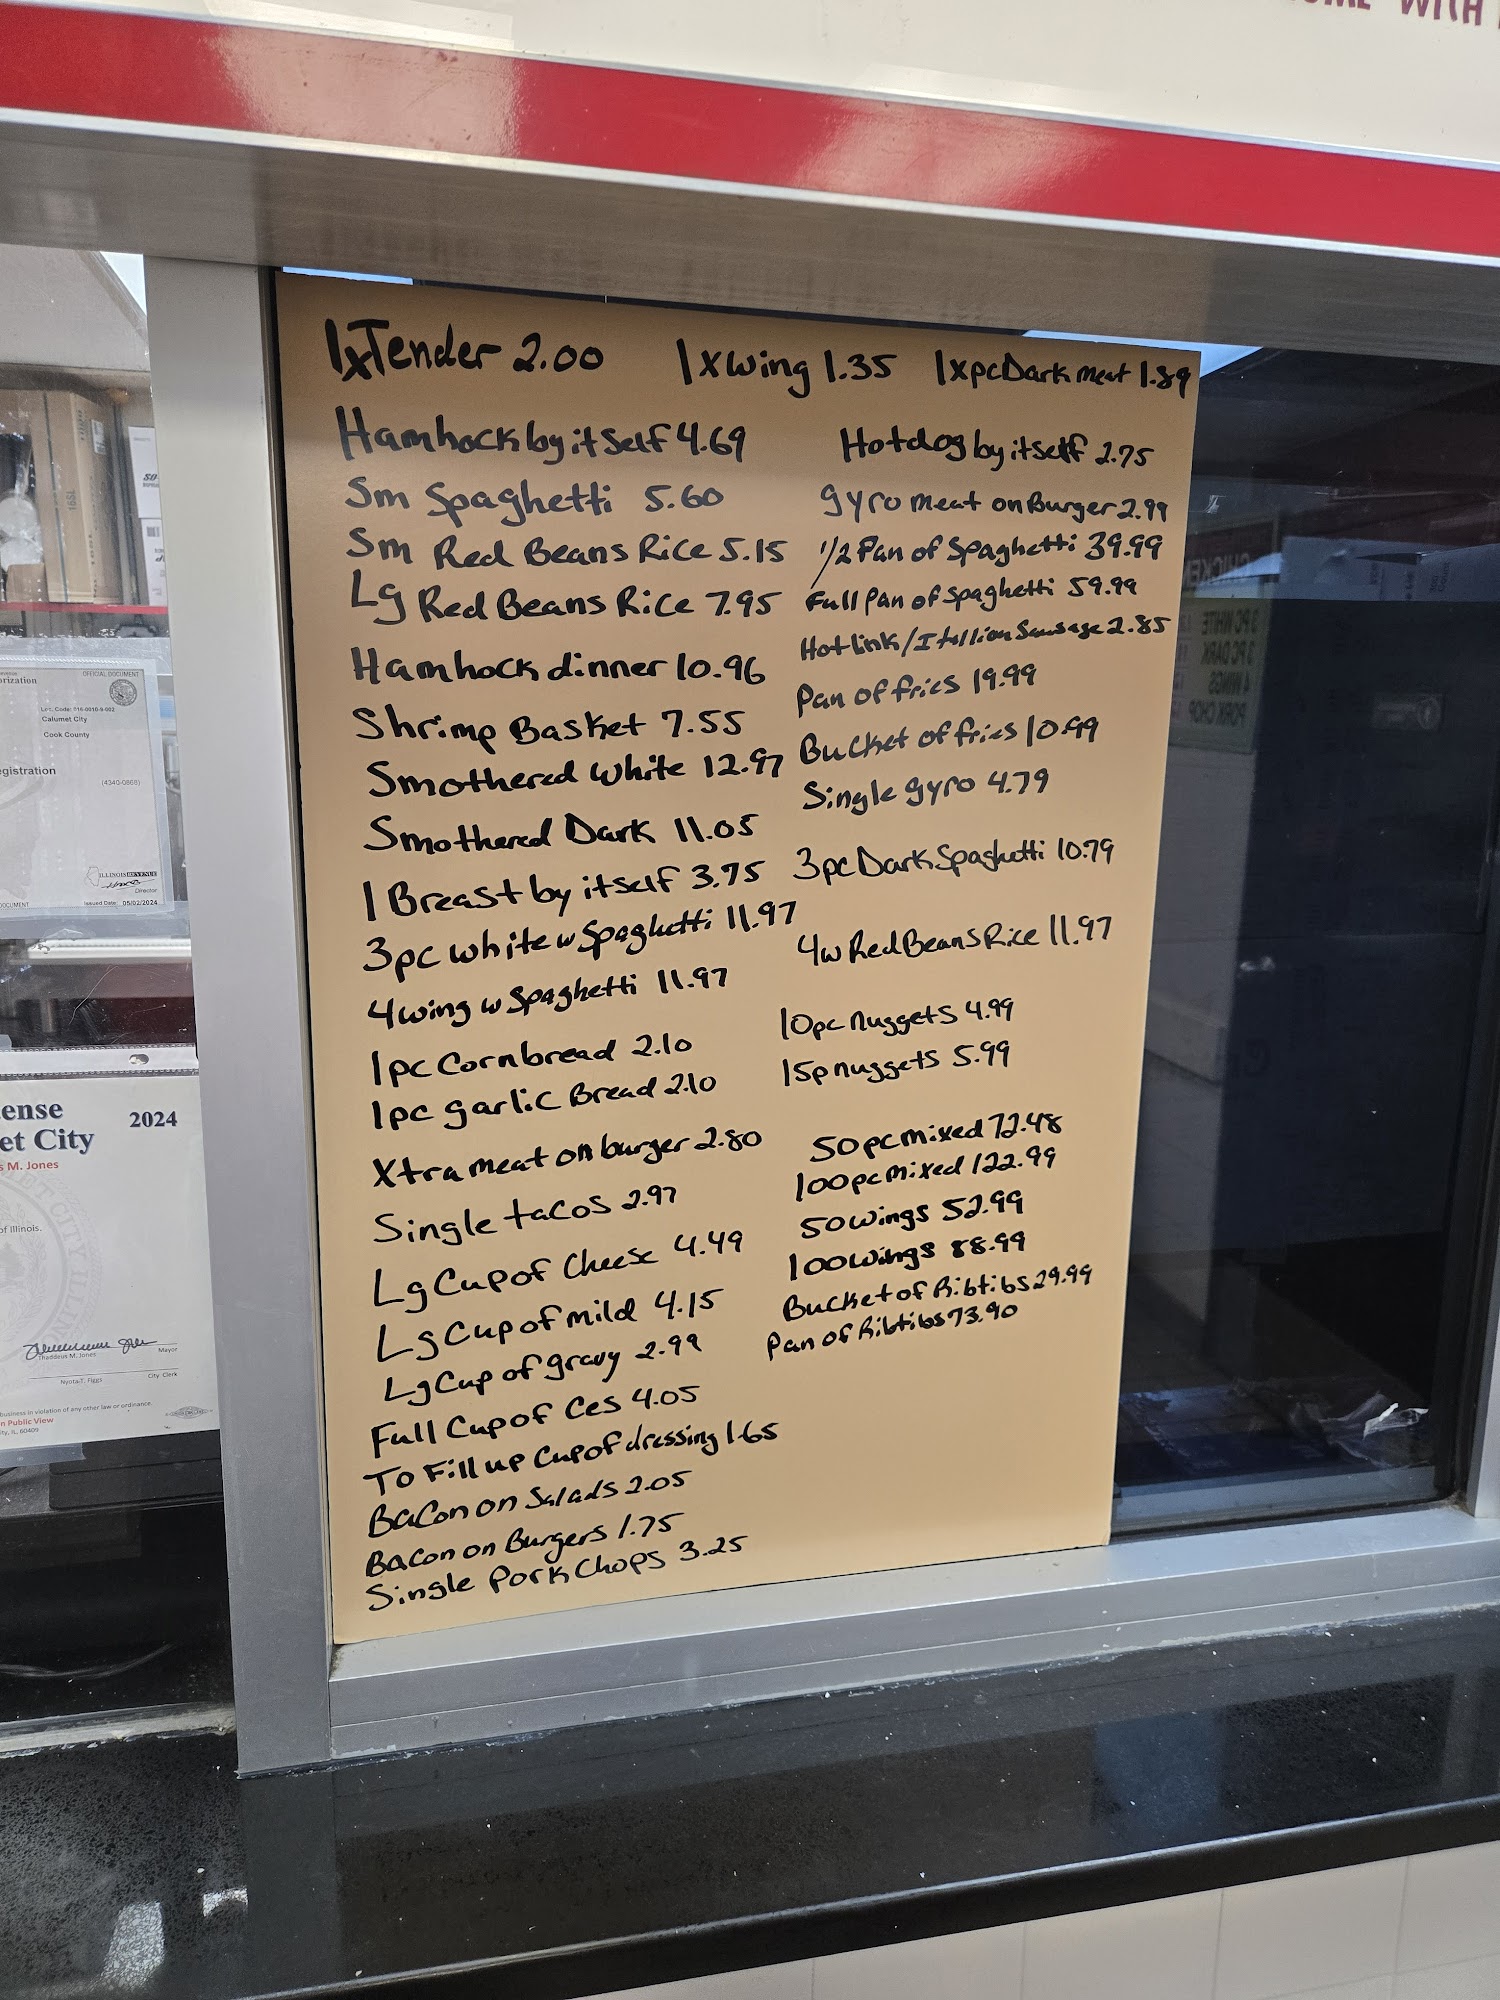 WITH
1xTender 2.00 1xwing 1.35 1xpcDark meat 1.89
Hamhock by itself 4.69
Sm Spaghetti 5.60
Sm Red Beans Rice 5.15
Lg Red Beans Rice 7.95
Hamhock dinner 10.96
Shrimp Basket 7.55
Smothered white 12.97
Smothered Dark 11.05
1 Breast by itself 3.75
3pc white w Spaghetti 11.97
4wing w Spaghetti 11.97
1pc Cornbread 2.10
1pc garlic Bread 2.10
Xtra meat on burger 2.80
Single tacos 2.97
Lg Cup of Cheese 4.49
Lg Cup of mild 4.15
Lg Cup of gravy 2.99
Full Cup of Ces 4.05
To Fill up Cup of dressing 1.65
Bacon on Salads 2.05
Bacon on Burgers 1.75
Single Pork Chops 3.25
Hotdog by itself 2.75
gyro meat on Burger 2.99
1/2 Pan of Spaghetti 39.99
Full Pan of Spaghetti 59.99
Hotlink/Itallion Sausage 2.85
Pan of fries 19.99
Bucket of fries 10.99
Single gyro 4.79
3pc Dark Spaghetti 10.79
4w Red Beans Rice 11.97
10pc nuggets 4.99
15p nuggets 5.99
50pc mixed 72.48
100pc mixed 122.99
50wings 52.99
100wings 88.99
Bucket of Ribtibs 29.99
Pan of Ribtibs 73.90
OFFICIAL DOCUMENT
Loc. Code: 016-0010-9-002
Calumet City
Cook County
egistration
(4340-0868)
ILLINOIS REVENUE
Director
OCUMENT
Issued Date: 05/02/2024
ense 2024
et City
s M. Jones
of Illinois.
Thaddeus M. Jones Mayor
Nyota T. Figgs City Clerk
business in violation of any other law or ordinance.
n Public View
ity, IL, 60409
CHICKEN
3 PC WHITE
3 PC DARK
4 WINGS
PORK CHOP